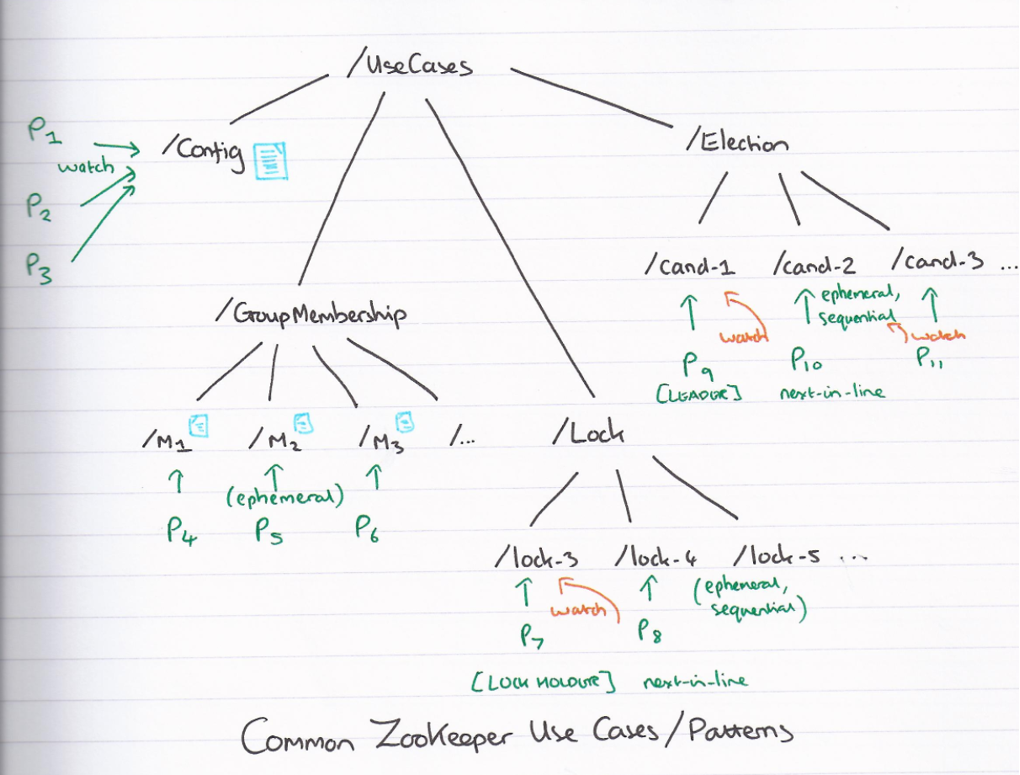 /UseCases
P1
watch
P2
P3
/Config
/Election
/cand-1 /cand-2 /cand-3 ...
ephemeral,
sequential
watch
watch
P9 P10 P11
[LEADER] next-in-line
/GroupMembership
/M1 /M2 /M3 /...
(ephemeral)
P4 P5 P6
/Lock
/lock-3 /lock-4 /lock-5 ...
(ephemeral,
sequential)
watch
P7 P8
[LOCK HOLDER] next-in-line
Common ZooKeeper Use Cases/Patterns